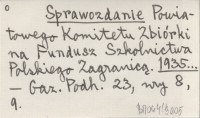 Sprawozdanie Powia-
towego Komitetu Zbiórki
na Fundusz Szkolnictwa
Polskiego Zagranicą. 1935...
— Gaz. Podh. 23, nry 8,
9.